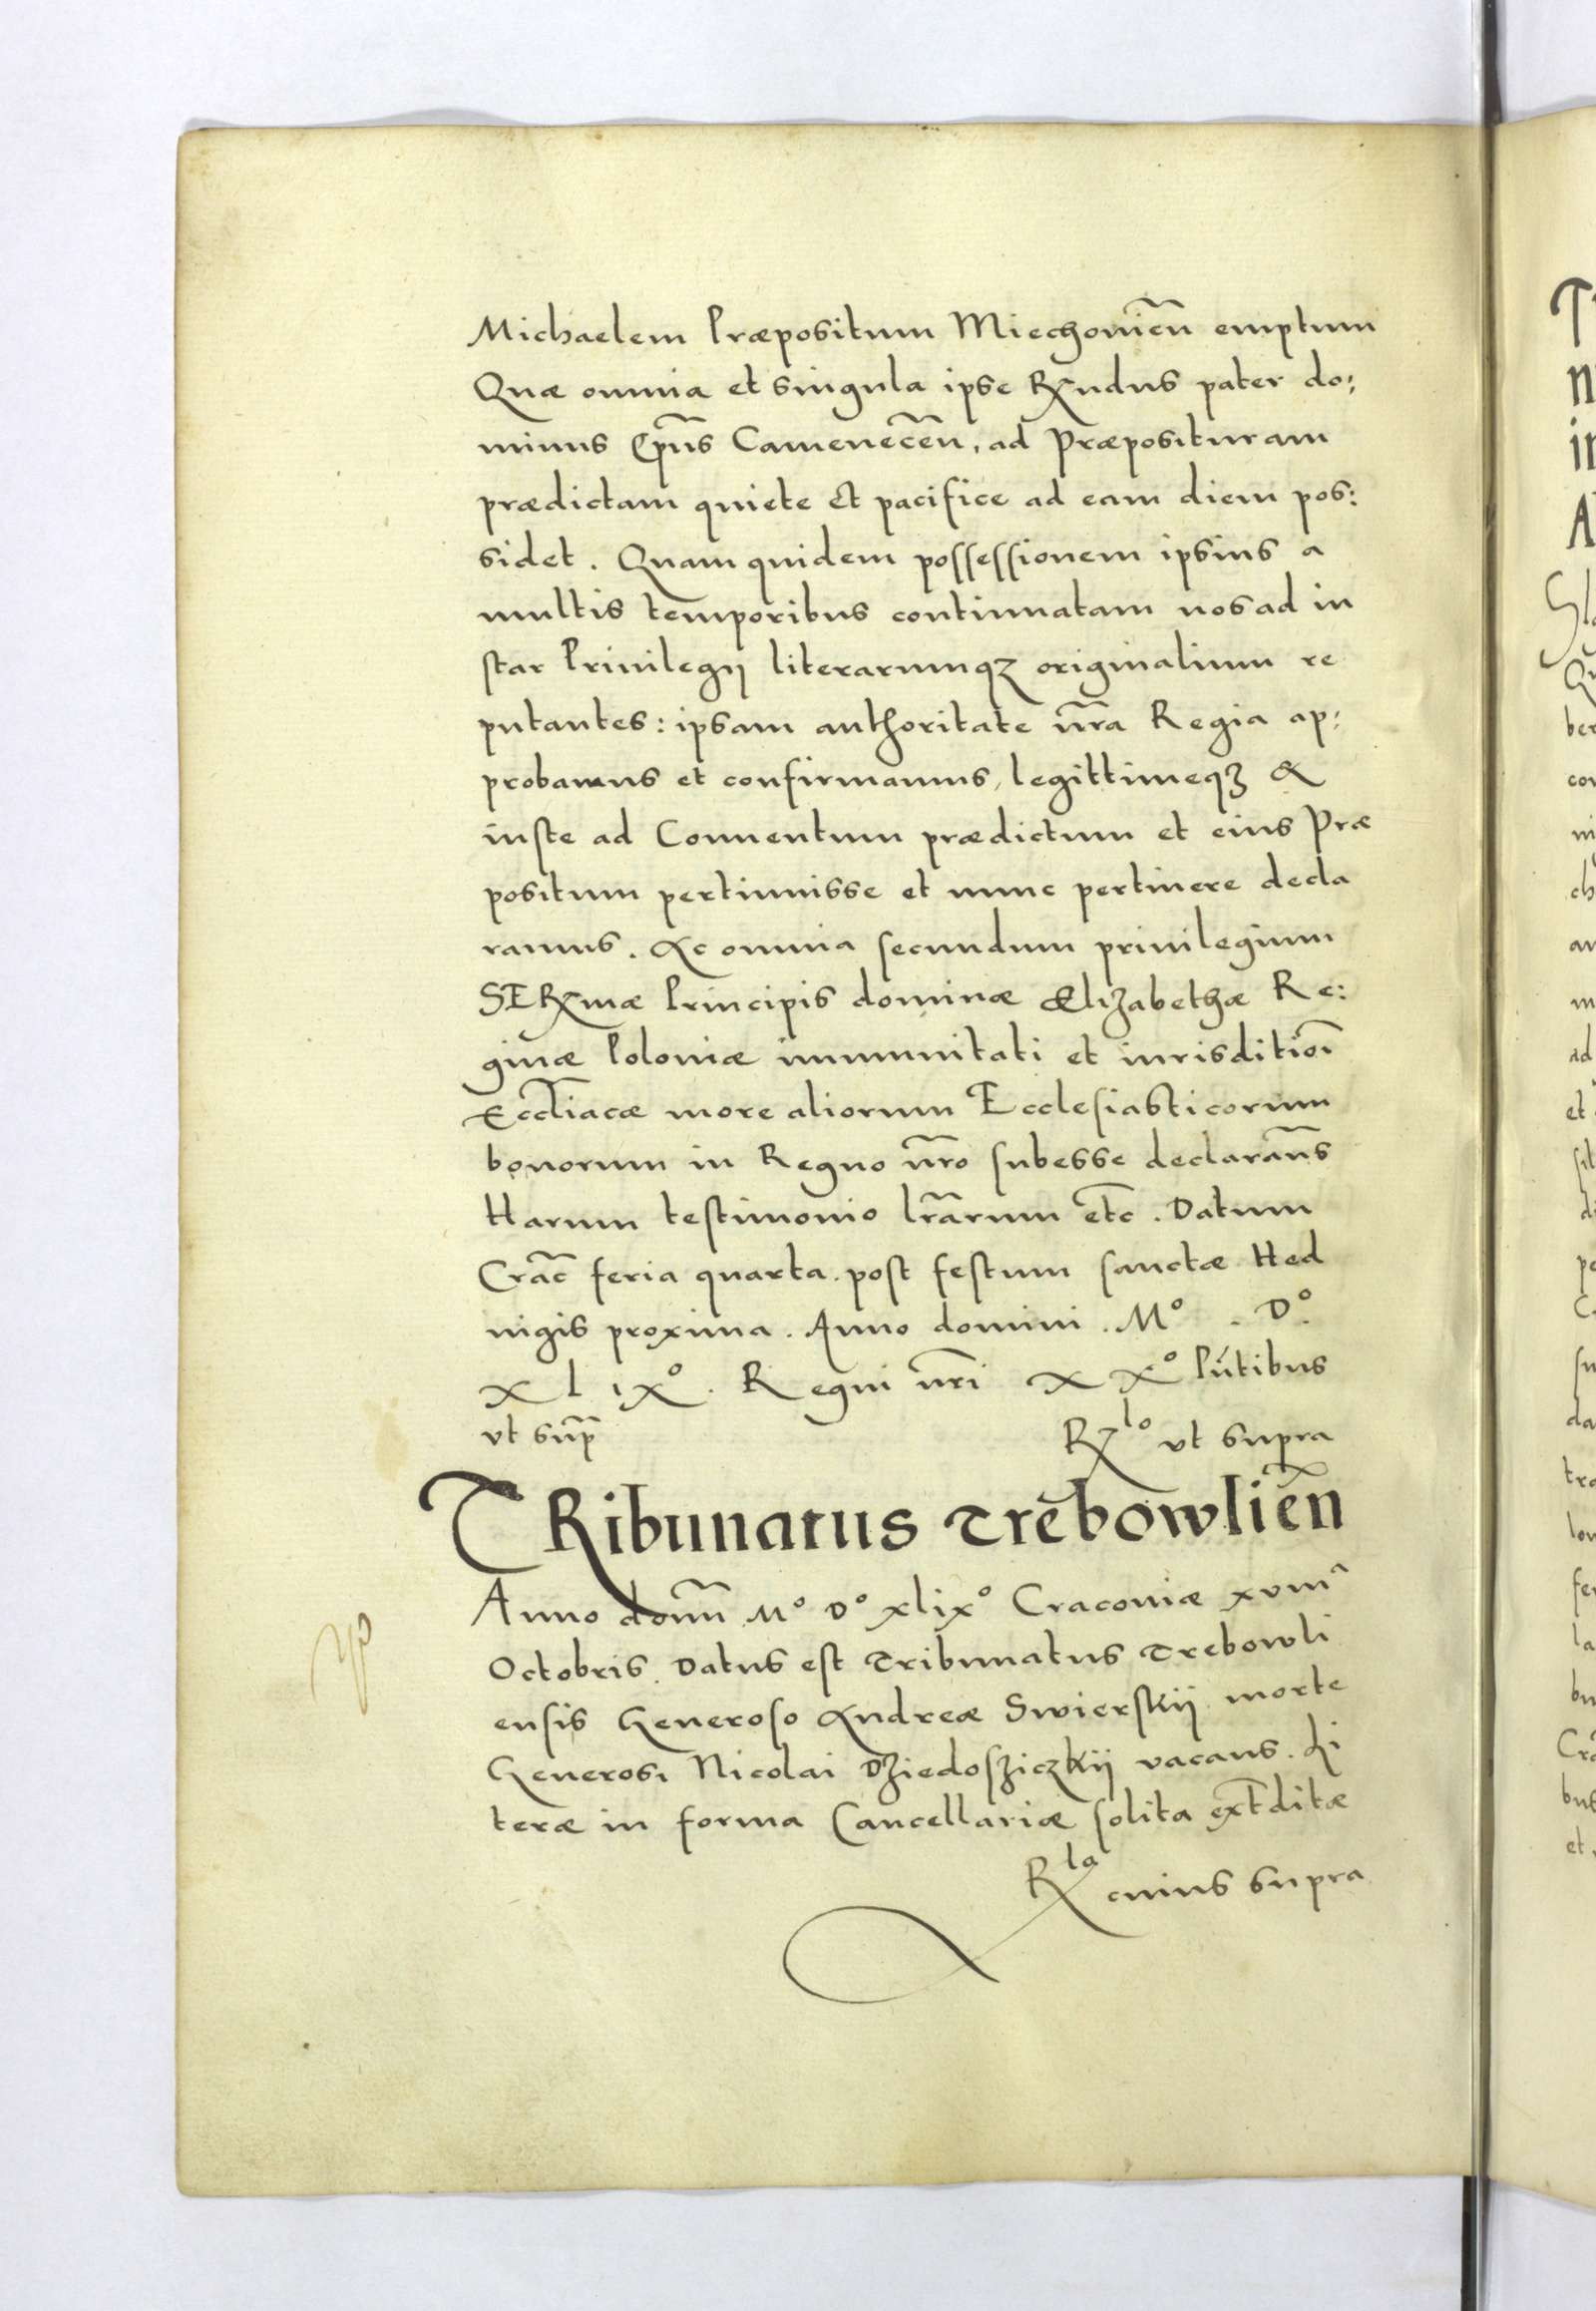 Michaelem Præpositum Miechovieñ emptum
Quæ omnia et singula ipse Rndus pater do:
minus Epũs Camenecẽn, ad Præposituram
prædictam quiete et pacifice ad eam diem pos:
sidet. Quam quidem possessionem ipsius a
multis temporibus continuatam nos ad in
star Privilegij literarumqꝫ originalium re
putantes: ipsam authoritate nr̃a Regia ap:
probamus et confirmamus, legittimeqꝫ &
iuste ad Conventum prædictum et eius Præ
positum pertinuisse et nunc pertinere decla
ramus. Ac omnia secundum privilegium
SERmæ Principis dominæ Elizabethæ Re:
ginæ Poloniæ immunitati et iurisditiõi
Eccl̃iacæ more aliorum Ecclesiasticorum
bonorum in Regno nr̃o subesse declarañs
Harum testimonio lr̃arum etc̃. Datum
Crac̃ feria quarta post festum sanctæ Hed
vigis proxima. Anno domini. Mº. Dº.
xl ixº. Regni nr̃i xxº Pñtibus
vt sup̃
Rlº vt supra
TRibunatus Trẽbowliẽn
Anno domñ Mº Dº xlixº Cracoviæ xviiiª
Octobris. Datus est Tribunatus Trebowli
ensis Generoso Andreæ Swierskij morte
Generosi Nicolai Dziedosziczkij vacans. Li
teræ in forma Cancellariæ solita ext̃ditæ
Rla cuius supra